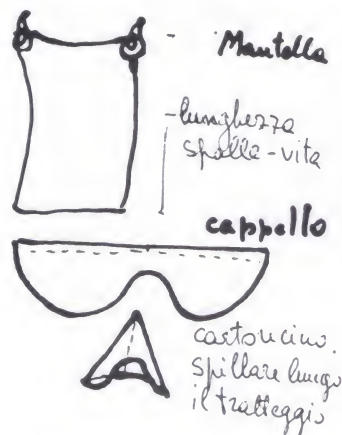 Mantella
-lunghezza
spalle-vita
cappello
cartoncino.
Spillare lungo
il tratteggio